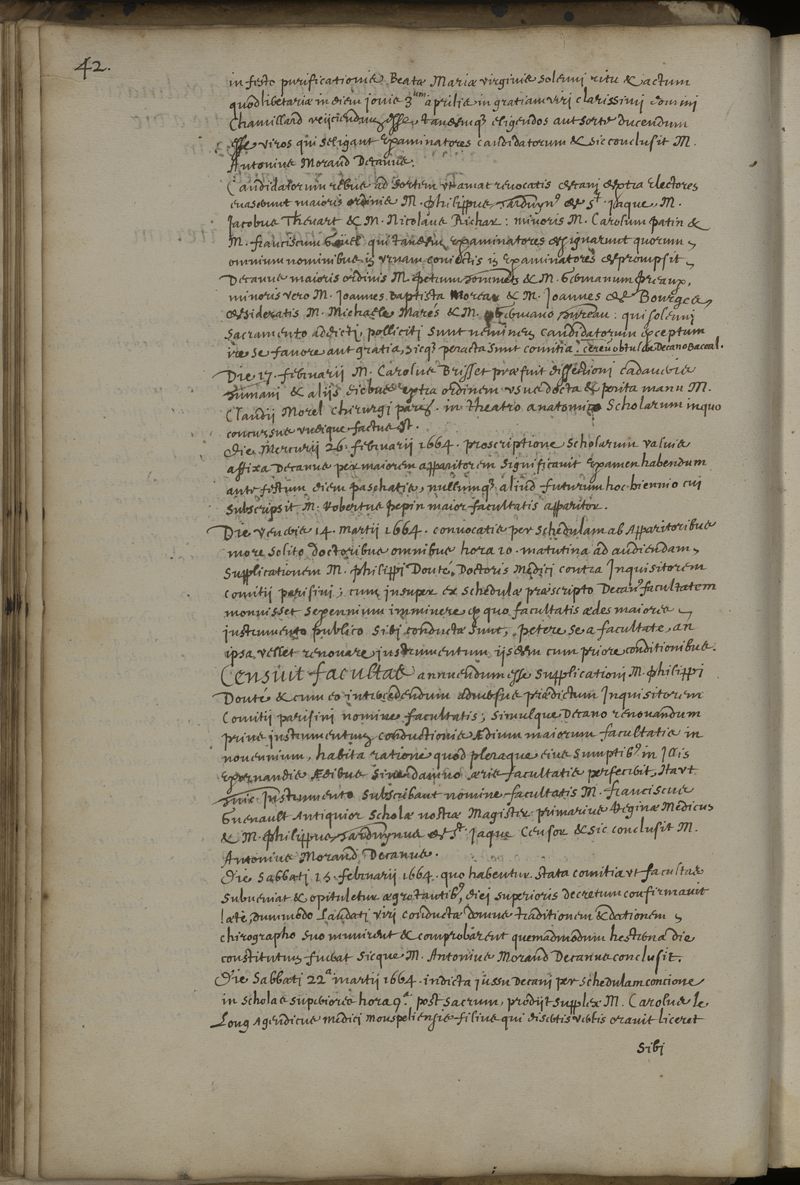 42.
in festo purificationis Beatæ Mariæ virginis solemni ritu & actum
quodlibetaria in diem jovis 3um aprilis in gratiam viri clarissimi domini
Chamillard reijciendum esse, tandemq; eligendos aut sorte ducendum
esse viros qui seligant Examinatores candidatorum & sic conclusit M.
Antonius Morand Decanus.
Candidatorum rebus ad sortem vt amat revocatis decani dextra Electores
evaserunt maioris ordinis M. philippus hardwyn9 de St. Jaque, M.
Jacobus Thevart & M. Nicolaus Richar: minoris M. Carolum patin &
M. franciscum qui tandem examinatores designarunt quorum
omnium nominibus in vrnam coniectis is Examinatores deprompsit
Decanus maioris ordinis M. petrum & M. Germanum preaux,
minoris vero M. Joannes Baptista Moreau & M. Joannes de Bourges,
desideratis M. Michaele Marés & M. Germano hureau: qui solemni
Sacramento addicti, polliciti sunt neminem candidatorum exceptum
iri se favore aut gratia, sicq; peracta sunt comitia. cereu obtulit Decano Baccal.
Die 17. februarij M. Carolus Brisset præfuit dissectioni cadaveris
humani & alijs diebus extra ordinem vsus docta & perita manu M.
Claudij Morel chirurgi paris. in theatro anatomico Scholarum in quo
concursus vndique factus est.
Die Mercurij 26. februarij 1664. proscriptione Scholarum valvis
affixa Decanus per maiorem apparitorem significavit Examen habendum
ante festum diem paschatis, nullumq; aliud futurum hoc biennio cui
subscripsit M. Robertus pepin maior facultatis apparitor.
Die veneris 14. Martij 1664. convocatis per Schedulam ab Apparitoribus
more solito doctoribus omnibus hora 10. matutina ad audiendam
Supplicationem M. philippi Douté, Doctoris Medici contra Inquisitorem
comitij parisini; cum insuper ex Schedulæ præscripto Decan9 facultatem
monuisset Sexennium imminere ex quo facultatis ædes maiores
instrumento publico sibi conductæ sunt, petere se a facultate, an
ipsa vellet renovare instrumentum ijsdem cum priore conditionibus.
Censuit facultas annuendum esse Supplicationi M. philippi
Douté & cum eo intercedendum adversus prædictum Inquisitorem
Comitij parisini nomine facultatis; simulque Decano renovandum
prius instrumentum conductionis Ædium maiorum facultatis in
novennium, habita ratione quod pleraque eius sumptib9 in Illis
Exornandis Ædibus sine damno æris facultatis perfecerit, Ita vt
huic Instrumento subscribant nomine facultatis M. franciscus
Guenault Antiquior Scholæ nostræ Magister primarius Reginæ Medicus
& M. philippus hardwynus de St. Jaque Censor & sic conclusit M.
Antonius Morand Decanus.
Die Sabbati 15. februarij 1664. quo habentur stata comitia vt facultas
subveniat & opituletur ægrotantib9, diei superioris decretum confirmavit
late, dummodo laudati viri conductæ domus traditionem & dationem
chirographo suo munirent & comprobarent quemadmodum hesterna die
constitutum fuerat sicque M. Antonius Morand Decanus conclusit.
Die Sabbati 22a martij 1664. indicta jussu Decani per Schedulam concione
in Scholas superiores hora 9a. post sacrum, prodijt supplex M. Carolus le
Long Agendicus medici monspeliensis filius qui disertis verbis oravit liceret
Sibi